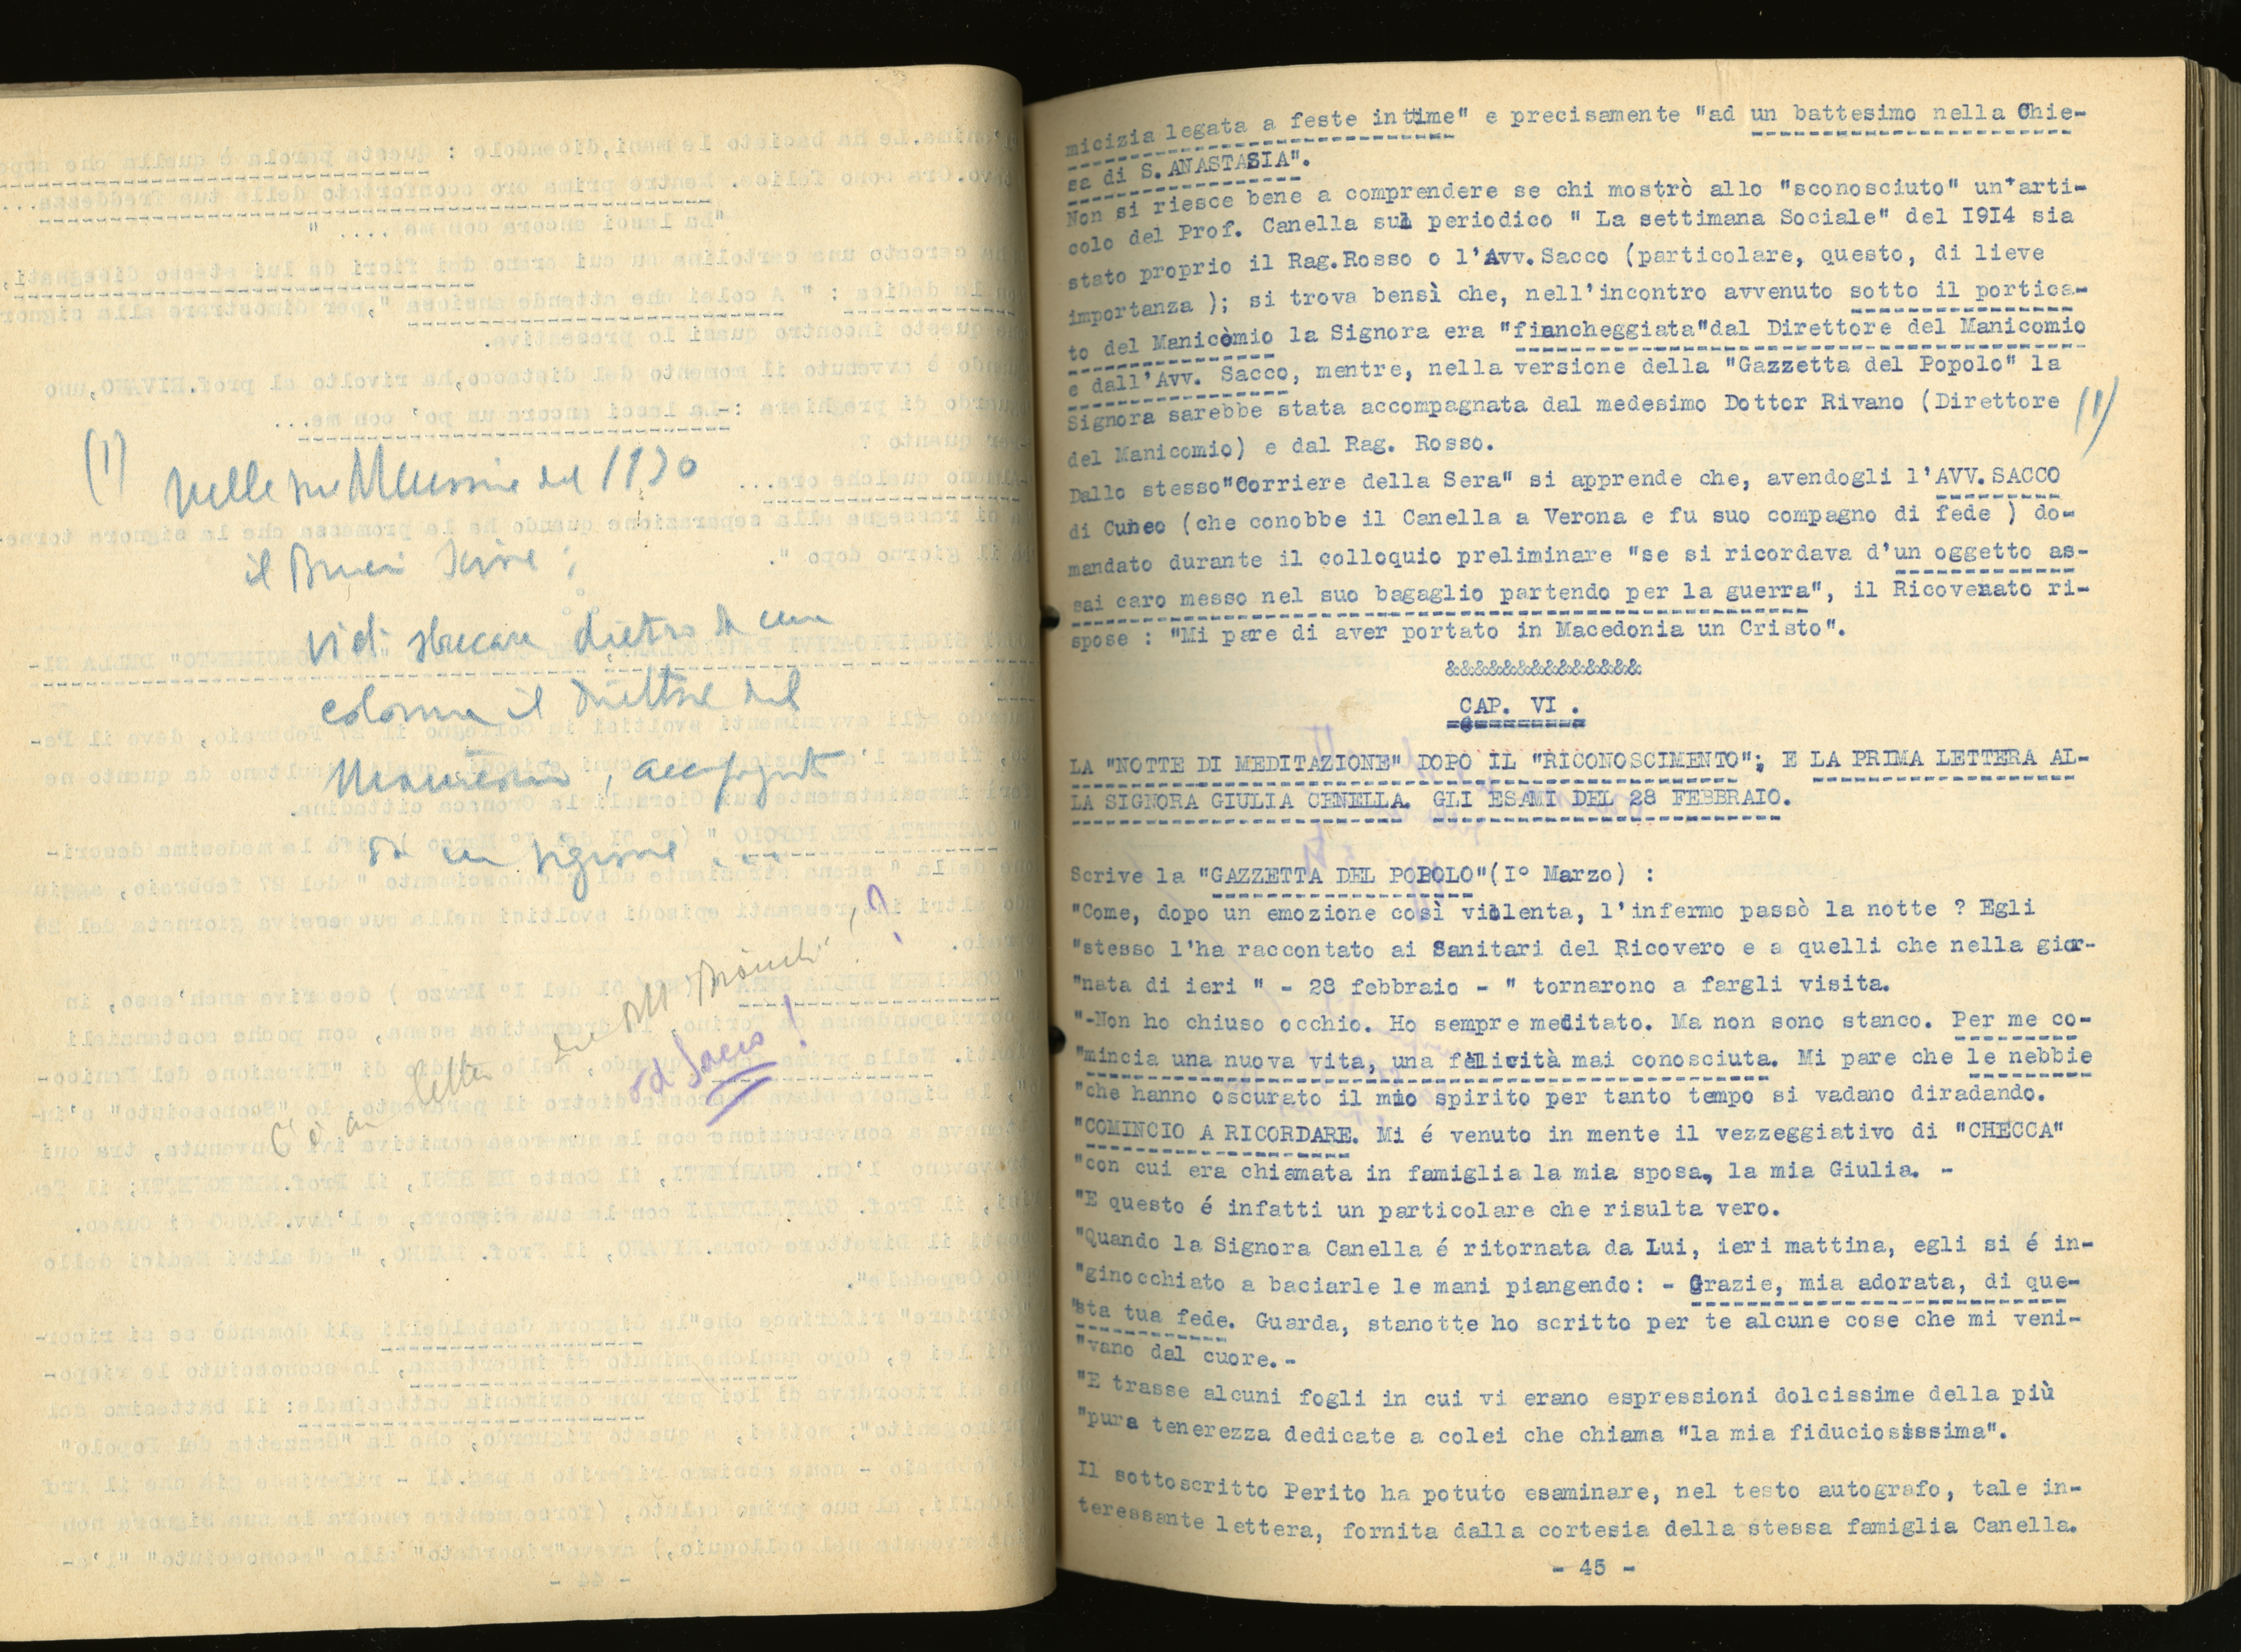 (1)
nelle sue Memorie del 1930
il Bruneri scrive:
vidi sbucare dietro da una
colonna il Direttore del
Manicomio, accompagnato
da un signore ....
C'è una lettera
ad Sacco!
?
micizia legata a feste intime" e precisamente "ad un battesimo nella Chie-
sa di S. ANASTASIA".
Non si riesce bene a comprendere se chi mostrò allo "sconosciuto" un'arti-
colo del Prof. Canella sul periodico " La settimana Sociale" del I9I4 sia
stato proprio il Rag.Rosso o l'Avv.Sacco (particolare, questo, di lieve
importanza ); si trova bensì che, nell'incontro avvenuto sotto il portica-
to del Manicòmio la Signora era "fiancheggiata"dal Direttore del Manicomio
e dall'Avv. Sacco, mentre, nella versione della "Gazzetta del Popolo" la
Signora sarebbe stata accompagnata dal medesimo Dottor Rivano (Direttore (1)
del Manicomio) e dal Rag. Rosso.
Dallo stesso"Corriere della Sera" si apprende che, avendogli l'AVV.SACCO
di Cuneo (che conobbe il Canella a Verona e fu suo compagno di fede ) do-
mandato durante il colloquio preliminare "se si ricordava d'un oggetto as-
sai caro messo nel suo bagaglio partendo per la guerra", il Ricoverato ri-
spose : "Mi pare di aver portato in Macedonia un Cristo".
&&&&&&&&&&&&&&
CAP. VI .
LA "NOTTE DI MEDITAZIONE" DOPO IL "RICONOSCIMENTO"; E LA PRIMA LETTERA AL-
LA SIGNORA GIULIA CENELLA. GLI ESAMI DEL 28 FEBBRAIO.
Scrive la "GAZZETTA DEL POPOLO"(I° Marzo) :
"Come, dopo un emozione così violenta, l'infermo passò la notte ? Egli
"stesso l'ha raccontato ai Sanitari del Ricovero e a quelli che nella gior-
"nata di ieri " - 28 febbraio - " tornarono a fargli visita.
"-Non ho chiuso occhio. Ho sempre meditato. Ma non sono stanco. Per me co-
"mincia una nuova vita, una felicità mai conosciuta. Mi pare che le nebbie
"che hanno oscurato il mio spirito per tanto tempo si vadano diradando.
"COMINCIO A RICORDARE. Mi é venuto in mente il vezzeggiativo di "CHECCA"
"con cui era chiamata in famiglia la mia sposa, la mia Giulia. -
"E questo é infatti un particolare che risulta vero.
"Quando la Signora Canella é ritornata da Lui, ieri mattina, egli si é in-
"ginocchiato a baciarle le mani piangendo: - Grazie, mia adorata, di que-
"sta tua fede. Guarda, stanotte ho scritto per te alcune cose che mi veni-
"vano dal cuore.-
"E trasse alcuni fogli in cui vi erano espressioni dolcissime della più
"pura tenerezza dedicate a colei che chiama "la mia fiduciosissima".
Il sottoscritto Perito ha potuto esaminare, nel testo autografo, tale in-
teressante lettera, fornita dalla cortesia della stessa famiglia Canella.
- 45 -